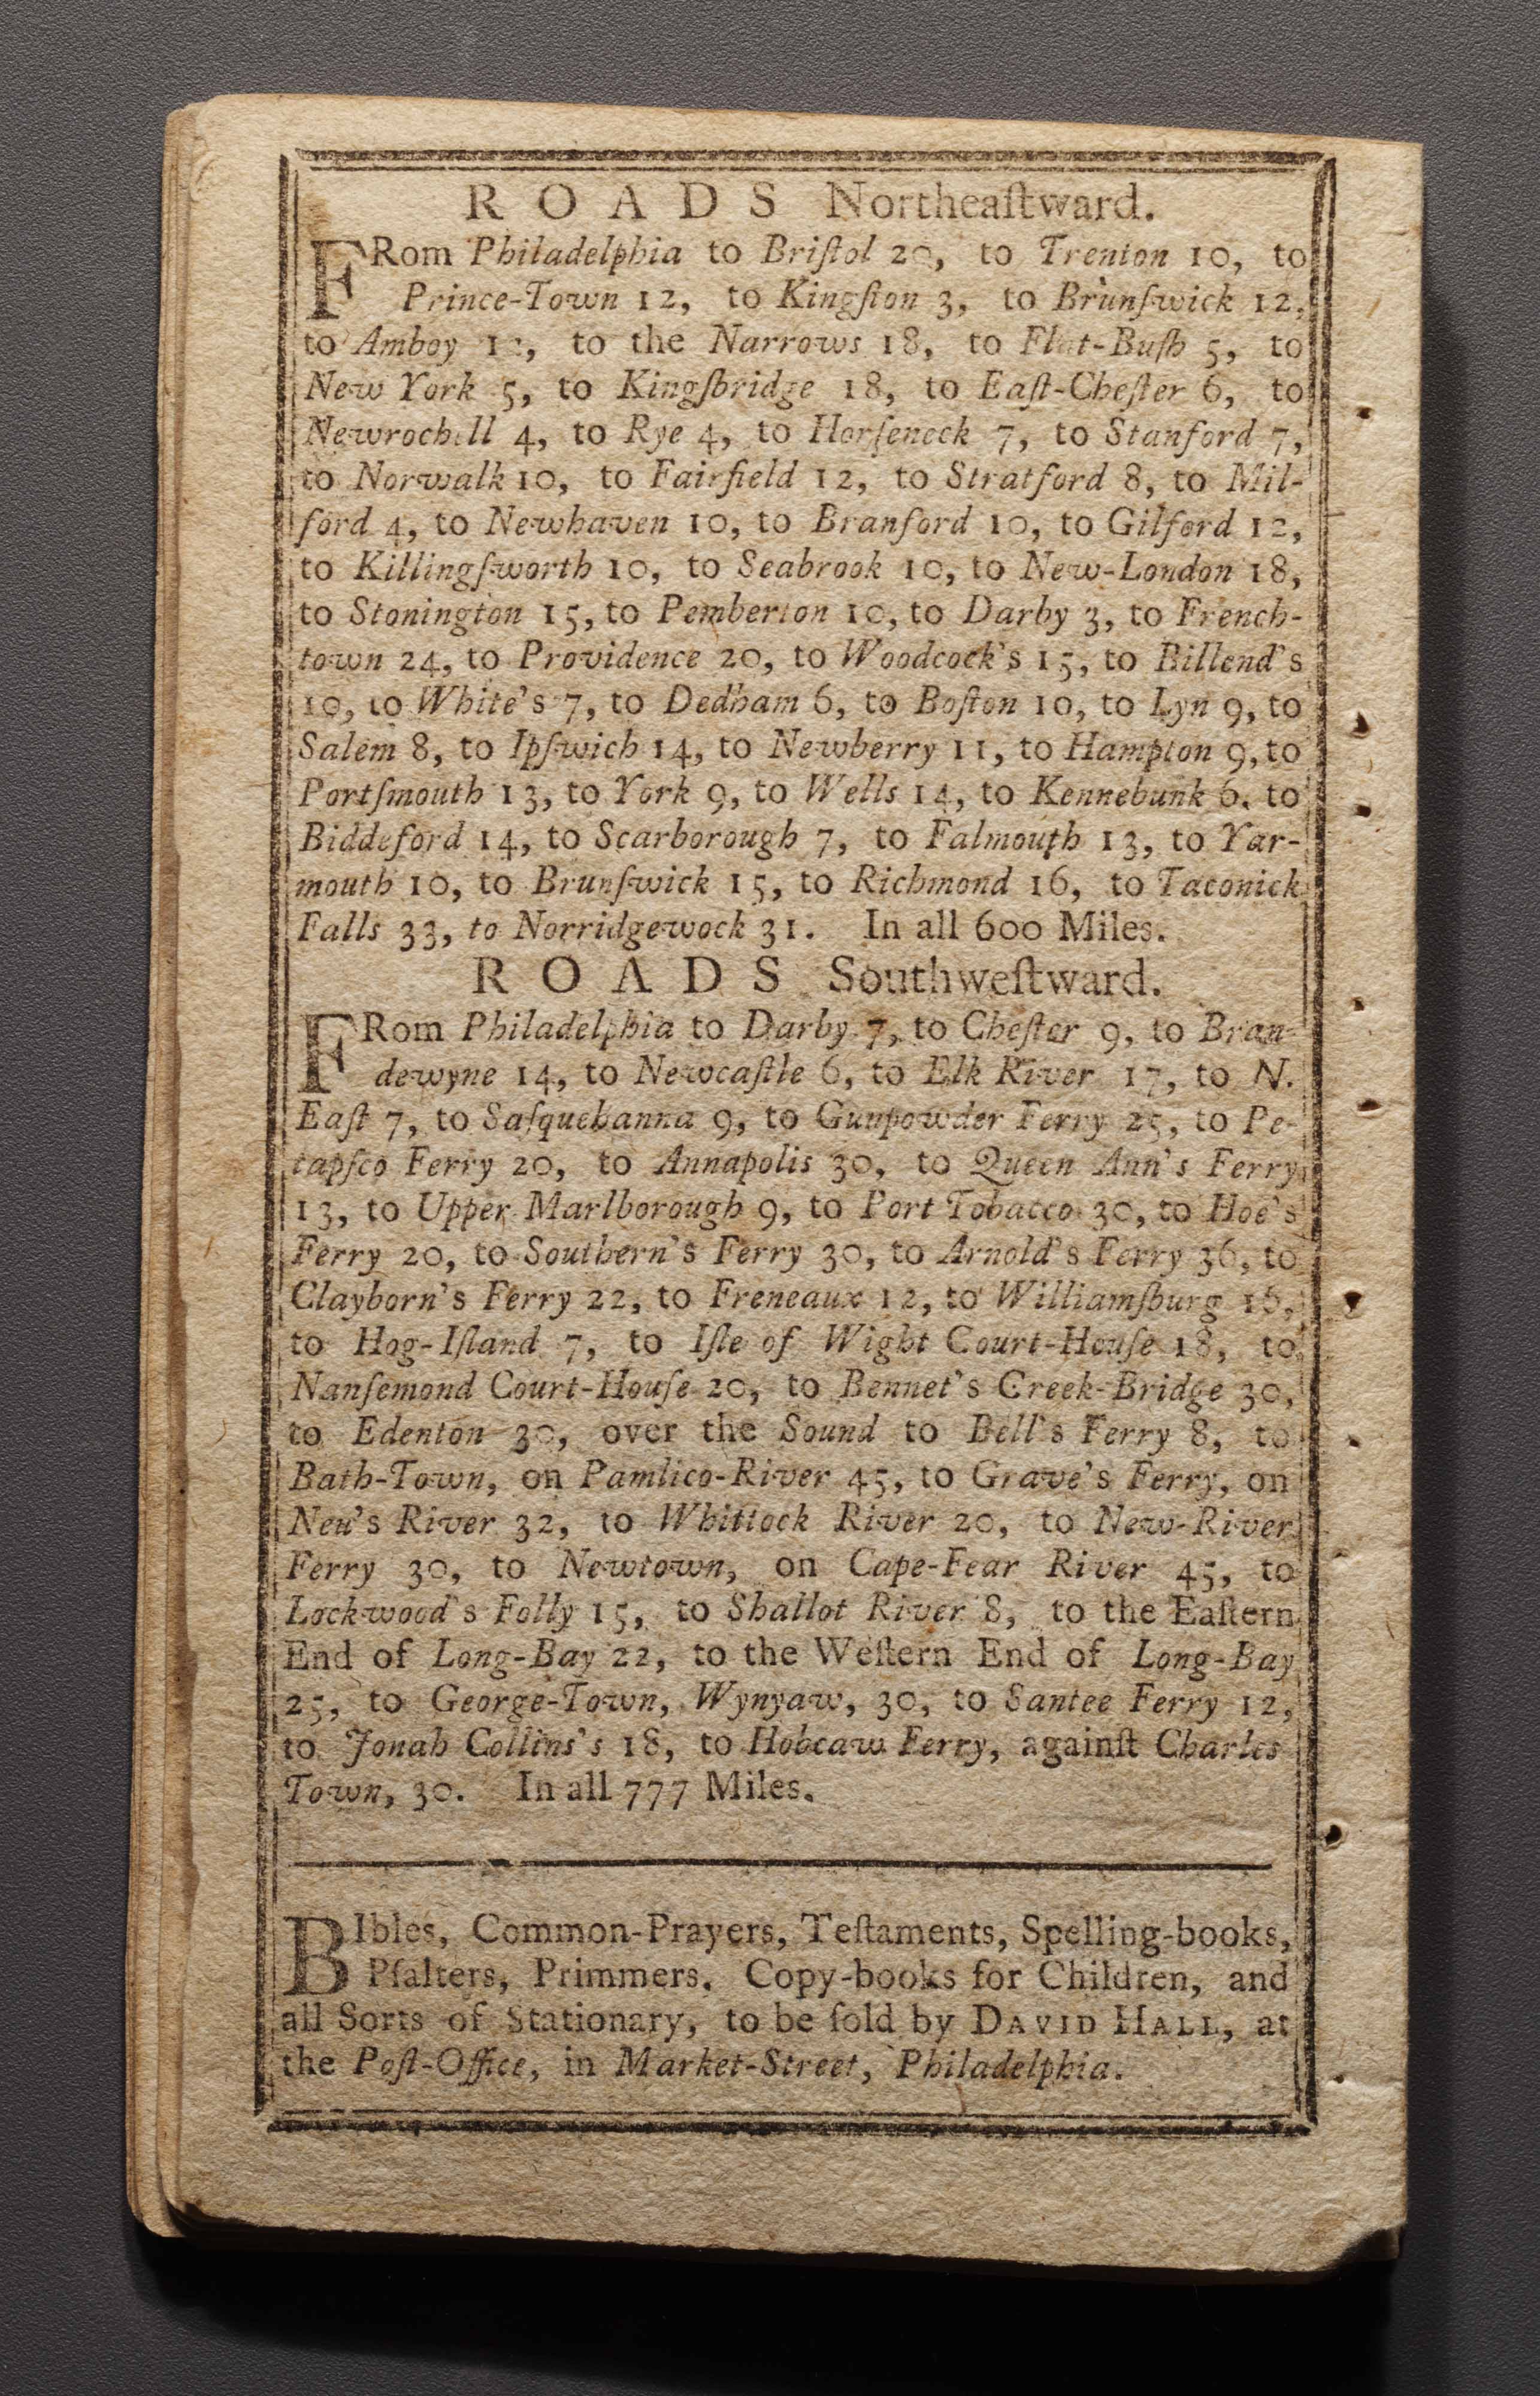 ROADS Northeaſtward.
FRom Philadelphia to Briſtol 20, to Trenton 10, to
Prince-Town 12, to Kingſton 3, to Brunſwick 12,
to Amboy to the Narrows 18, to Flat-Buſh 5, to
New York 5, to Kingſbridge 18, to Eaſt-Cheſter 6, to
Newrochell 4, to Rye 4, to Horſeneck 7, to Stanford 7,
to Norwalk 10, to Fairfield 12, to Stratford 8, to Mil-
ford 4, to Newhaven 10, to Branford 10, to Gilford 12,
to Killingſworth 10, to Seabrook 10, to New-London 18,
to Stonington 15, to Pemberton 10, to Darby 3, to French-
town 24, to Providence 20, to Woodcock's 15, to Billend's
10, to White's 7, to Dedham 6, to Boſton 10, to Lyn 9, to
Salem 8, to Ipſwich 14, to Newberry 11, to Hampton 9, to
Portſmouth 13, to York 9, to Wells 14, to Kennebunk 6, to
Biddeford 14, to Scarborough 7, to Falmouth 13, to Yar-
mouth 10, to Brunſwick 15, to Richmond 16, to Taconick
Falls 33, to Norridgewock 31. In all 600 Miles.
ROADS Southweſtward.
FRom Philadelphia to Darby 7, to Cheſter 9, to Bran-
dewyne 14, to Newcaſtle 6, to Elk River 17, to N.
Eaſt 7, to Saſquehanna 9, to Gunpowder Ferry 25, to Pe-
tapſco Ferry 20, to Annapolis 30, to Queen Ann's Ferry
13, to Upper Marlborough 9, to Port Tobacco 30, to Hoe's
Ferry 20, to Southern's Ferry 30, to Arnold's Ferry 36, to
Clayborn's Ferry 22, to Freneaux 12, to Williamſburg 16,
to Hog-Iſland 7, to Iſle of Wight Court-Houſe 18, to
Nanſemond Court-Houſe 20, to Bennet's Creek-Bridge 30,
to Edenton 30, over the Sound to Bell's Ferry 8, to
Bath-Town, on Pamlico-River 45, to Grave's Ferry, on
Neu's River 32, to Whitlock River 20, to New-River
Ferry 30, to Newtown, on Cape-Fear River 45, to
Lockwood's Folly 15, to Shallot River 8, to the Eaſtern
End of Long-Bay 22, to the Weſtern End of Long-Bay
25, to George-Town, Wynyaw, 30, to Santee Ferry 12,
to Jonah Collins's 18, to Hobcaw Ferry, againſt Charles
Town, 30. In all 777 Miles.
BIbles, Common-Prayers, Teſtaments, Spelling-books,
Pſalters, Primmers, Copy-books for Children, and
all Sorts of Stationary, to be ſold by DAVID HALL, at
the Poſt-Office, in Market-Street, Philadelphia.